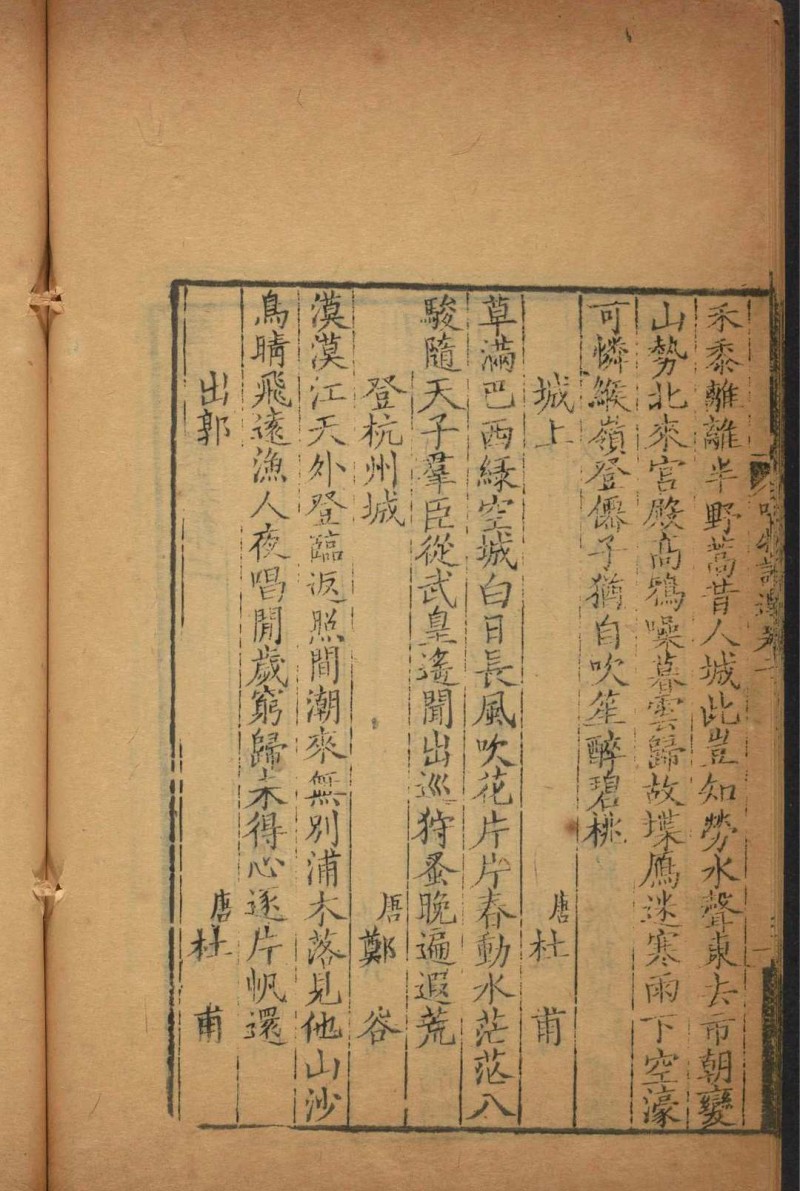 禾黍離離半野蒿昔人城此豈知勞水聲東去市朝變
山勢北來宮殿高鴉噪暮雲歸故堞鴈迷寒雨下空濠
可憐緱嶺登僊子猶自吹笙醉碧桃
城上 唐杜甫
草滿巴西綠空城白日長風吹花片片春動水茫茫八
駿隨天子羣臣從武皇遙聞出巡狩蚤晚遍遐荒
登杭州城 唐鄭谷
漠漠江天外登臨返照間潮來無別浦木落見他山沙
鳥晴飛遠漁人夜唱閒歲窮歸未得心逐片帆還
出郭 唐杜甫